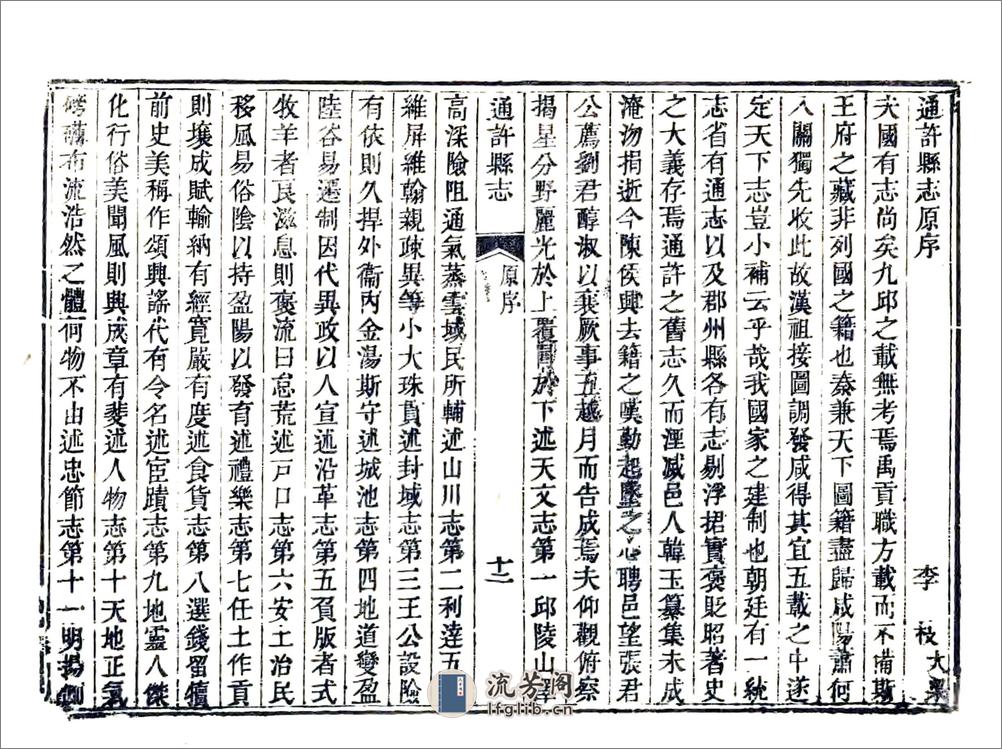 通許縣志原序
李枝 大梁
夫國有志尚矣九邱之載無考焉禹貢職方載而不備斯
王府之藏非列國之籍也秦兼天下圖籍盡歸咸陽蕭何
入關獨先收此故漢祖接圖調發咸得其宜五載之中遂
定天下志豈小補云乎哉我國家之建制也朝廷有一統
志省有通志以及郡州縣各有志剔浮捃實褒貶昭著史
之大義存焉通許之舊志久而湮減邑人韓玉纂集未成
淹沕捐逝今陳侯興去籍之嘆勤起墜之心聘邑望張君
公薦劉君醇淑以襄厥事五越月而告成焉夫仰觀俯察
揭星分野麗光於上覆冒於下述天文志第一邱陵山澤
通許縣志
原序
十二
高深險阻通氣蒸雲域民所輔述山川志第二利達五
維屏維翰親疎異等小大珠貫述封域志第三王公設險
有依則久捍外衞內金湯斯守述城池志第四地道變盈
陸谷易遷制因代異政以人宣述沿革志第五頁版者式
牧羊者艮滋息則褒流曰怠荒述戸口志第六安土治民
移風易俗陰以持盈陽以發育述禮樂志第七任土作貢
則壤成賦輸納有經寬嚴有度述食貨志第八選錢留犢
前史美稱作頌興謠代有令名述宦蹟志第九地靈人傑
化行俗美聞風則興成章有斐述人物志第十天地正氣
磅礴布流浩然之體何物不由述忠節志第十一明揚側
流芳閣
lfglib.cn